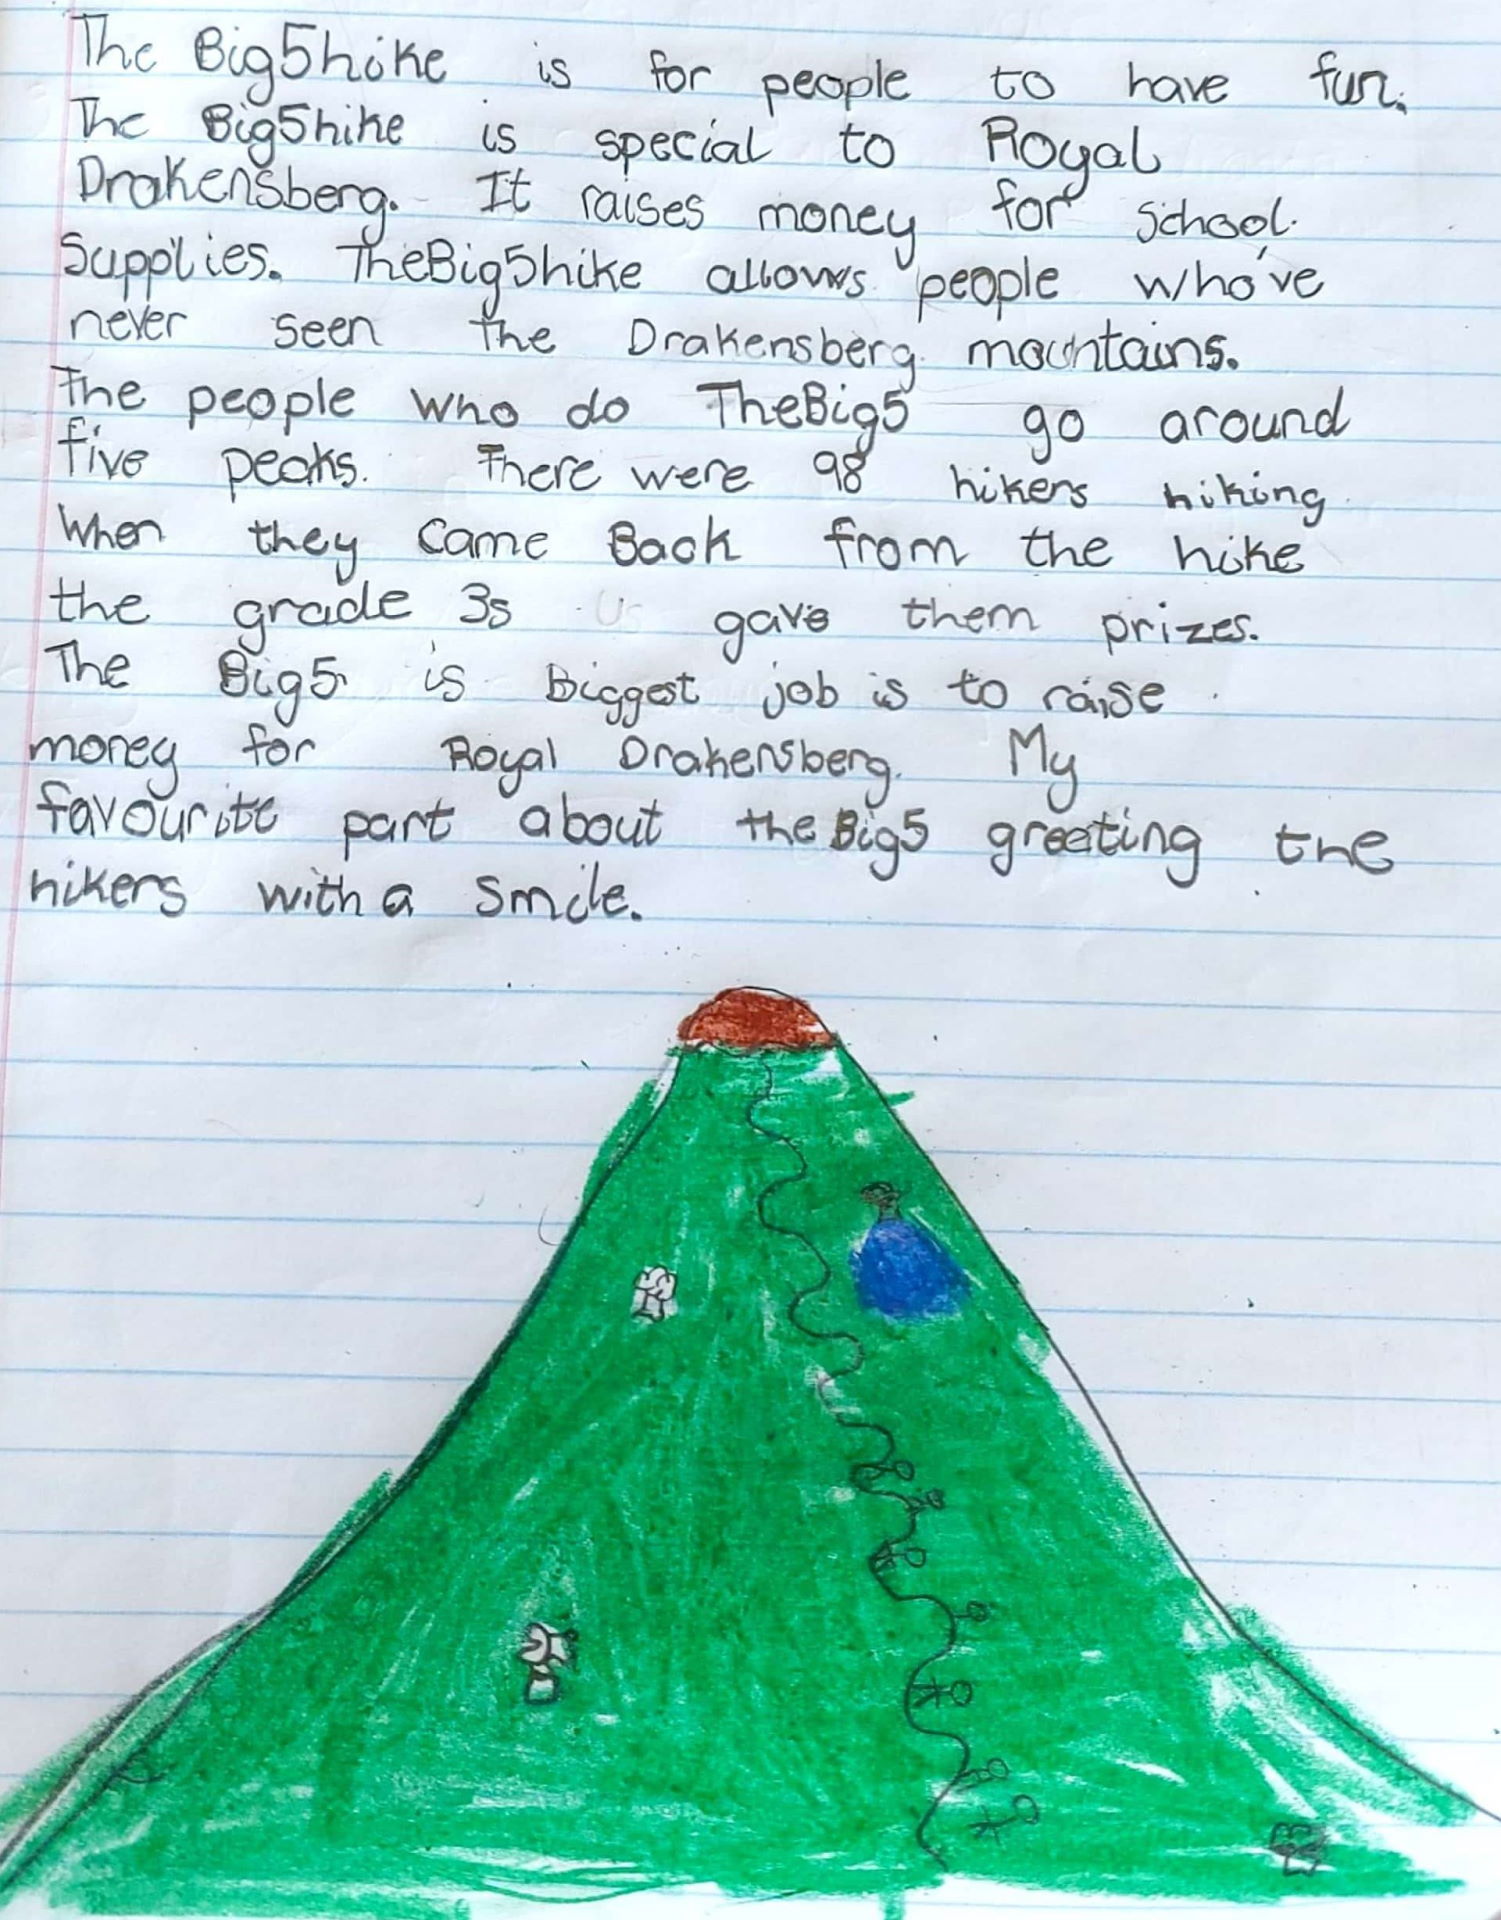 The Big5hike is for people to have fun.
The Big5hike is special to Royal
Drakensberg. It raises money for School
Supplies. TheBig5hike allows people who've
never seen the Drakensberg mountains.
The people who do TheBig5 go around
five peaks. There were 98 hikers hiking
When they came Back from the hike
the grade 3s gave them prizes.
The Big5 is Biggest job is to raise
money for Royal Drakensberg. My
favourite part about the Big5 greeting the
hikers with a smile.